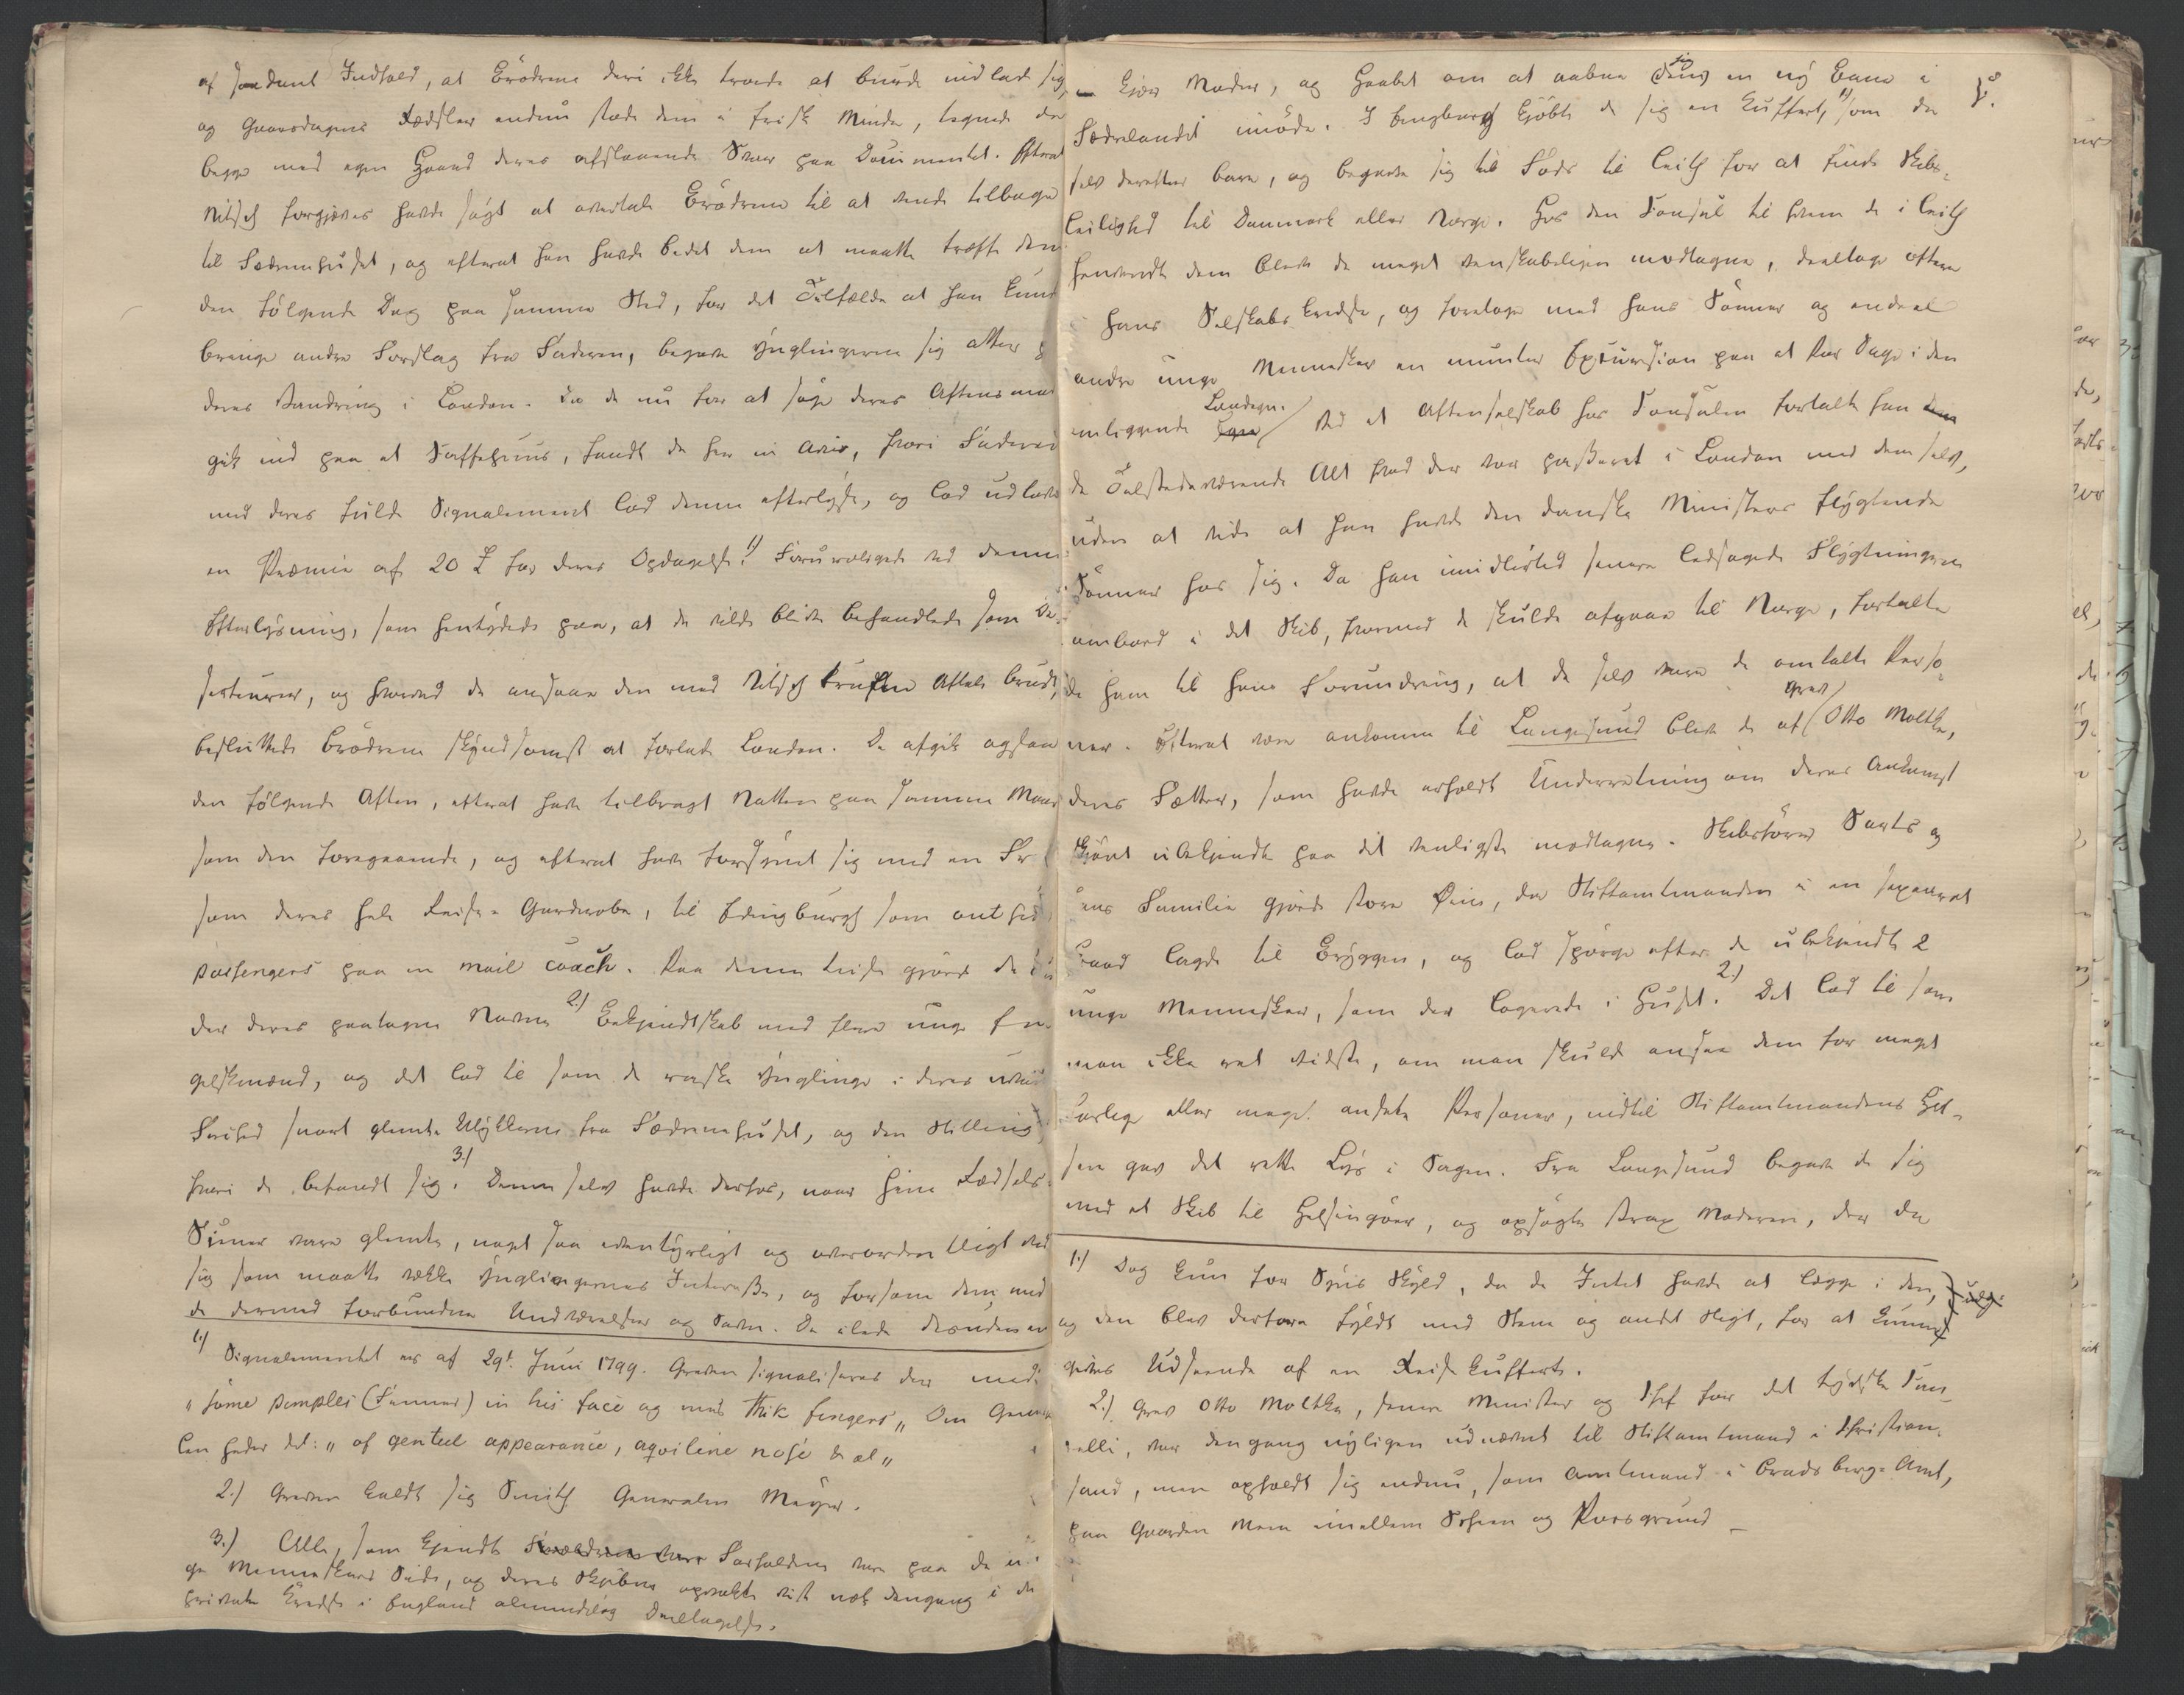 af saadant Indhold, at Brödrene deri ikke troede at burde indlade sig,
og Gaarsdagens Rædsler endnu stode dem i frisk Minde, tegnede de
begge med egen Haand deres afslaaende Svar paa Documentet. Efterat
Nilsch forgjæves havde søgt at overtale Brödrene til at vende tilbage
til Fædrenehuset, og efterat han havde bedet dem at maatte træffe dem
den følgende Dag paa samme Sted, for det Tilfælde at han kunde
bringe andre Forslag fra Faderen, begave Ynglingerne sig atter
deres Vandring i London. Da de nu for at søge deres Aftensmad
gik ind paa et Kaffehuus, fandt de her en Avis, hvori Faderen
med deres fulde Signalement lod dem efterlyse, og lod udlove
en Præmie af 20 £ for deres Opdagelse. 1) Foruroligede ved denne
Efterlysning, som hentydede paa, at de vilde blive behandlede som De-
serteurer, og hvorved de ansaae den med Nilsch trufne Aftale brudt,
besluttede Brödrene skyndsomst at forlade London. De afgik ogsaa
den følgende Aften, efterat have tilbragt Natten paa samme Maade
som den foregaaende, og efterat have forsynet sig med en
som deres hele Reise-Garderobe, til Edingburgh som outside
passengers paa en mail coach. Paa denne Reise gjorde de un-
der deres paatagne Navne 2) Bekjendtskab med flere unge En-
gelskmænd, og det lod til som de raske Ynglinge i deres
Frihed snart glemte Ulykkerne fra Fædrenehuset, og den Stilling
hvori de befandt sig. 3) Denne selv havde derhos, naar hine Rædsels-
Scener vare glemte, noget saa eventyrligt og overordentligt ved
sig som maatte vække Ynglingernes Interesse, og forsone dem med
de dermed forbundne Undværelser og Savn. De ilede desuden en
1) Signalementet er af 29d. Juni 1799. Greven signaliseres der med:
"some pemples (Finner) in his face og med thik fingers" Om Genera-
len heder det: "of genteel appearance, aqviline nose & al"
2.) Greven kaldt sig Smith Generalen Meyer.
3.) Alle, som kjendte Forholdene vare paa de un-
ge Menneskers Side, og deres Skjebne opvakte vist nok dengang i de
høieste Kredse i England almindelig Deeltagelse.
8.
kjær Moder, og Haabet om at aabne sig en ny Bane i
Fædrelandet imöde. I Edingburg kjøbte de sig en Kuffert, 1) som de
selv derefter bare, og begave sig til Fods til Leith for at finde Skibs-
leilighed til Danmark eller Norge. Hos den Consul til hvem de i Leith
henvendte dem bleve de meget venskabeligen modtagne, deeltoge oftere
i hans Selskabs kredse, og foretoge med hans Sönner og endeel
andre unge Mennesker en munter Excursion paa et Par Dage i den
omliggende Landegn. Ved et Aftenselskab hos Consulen fortalte han
de Tilstedeværende Alt hvad der var passeret i London med dem selv,
uden at vide at han havde den danske Ministers flygtende
Sönner hos sig. Da han imidlertid senere ledsagede Flygtningerne
ombord i det Skib, hvormed de skulde afgaae til Norge, fortalte
de ham til hans Forundring, at de selv vare de omtalte Perso-
ner. Efterat være ankomne til Langesund bleve de af Grev Otto Moltke,
deres Fætter, som havde erholdt Underretning om deres Ankomst
skjönt ubekjendte paa det venligste modtagne. Skibsföreren Sarts og
hans Familie gjorde store Øine, da Stiftamtmanden i en separat
Baad lagde til Bryggen, og lod spörge efter de ubekjendte 2
unge Mennesker, som der logerede i Huset. 2.) Det lod til som
man ikke ret vidste, om man skulde ansee dem for meget
farlige eller meget andete Personer, indtil Stiftamtmandens Hil-
sen gav det rette Lys i Sagen. Fra Langesund begave de sig
med et Skib til Helsingöer, og opsøgte strax Moderen, der da
1.) Dog kun for Syns Skyld, da de Intet havde at lægge i den,
og den blev derfore fyldt med Steen og andet Sligt, for at kunne
gives Udseende af en Reise kuffert.
2.) Grev Otto Moltke, senere Minister og Chef for det tydske Can-
celli, var dengang nyligen udnævnt til Stiftamtmand i Christian-
sand, men opholdt sig endnu, som Amtmand i Bradsberg-Amt,
paa Gaarden Mæla imellem Skeen og Porsgrund –